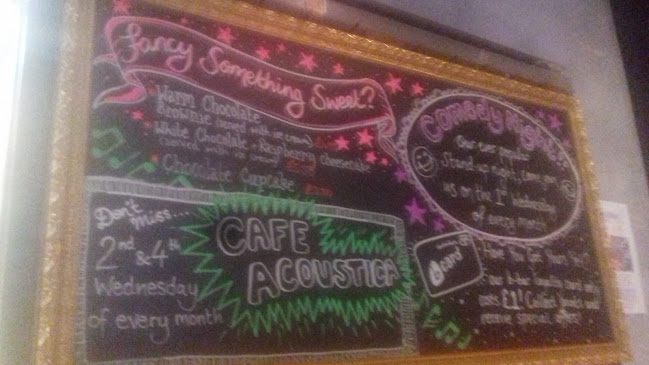 Fancy Something Sweet?
Warm Chocolate
Brownie (served with ice cream)
White Chocolate & Raspberry Cheesecake
(served with ice cream)
Chocolate Cupcake
Don't
miss...
2nd
& 4th
Wednesday
of every month
CAFE
ACOUSTICA
Comedy Night!
Our ever popular
Stand-up night,
us on the 1st Wednesday
of every month
card
Have You Got Yours Yet?
loyalty card only
costs £1! Collect points and
receive special offers!